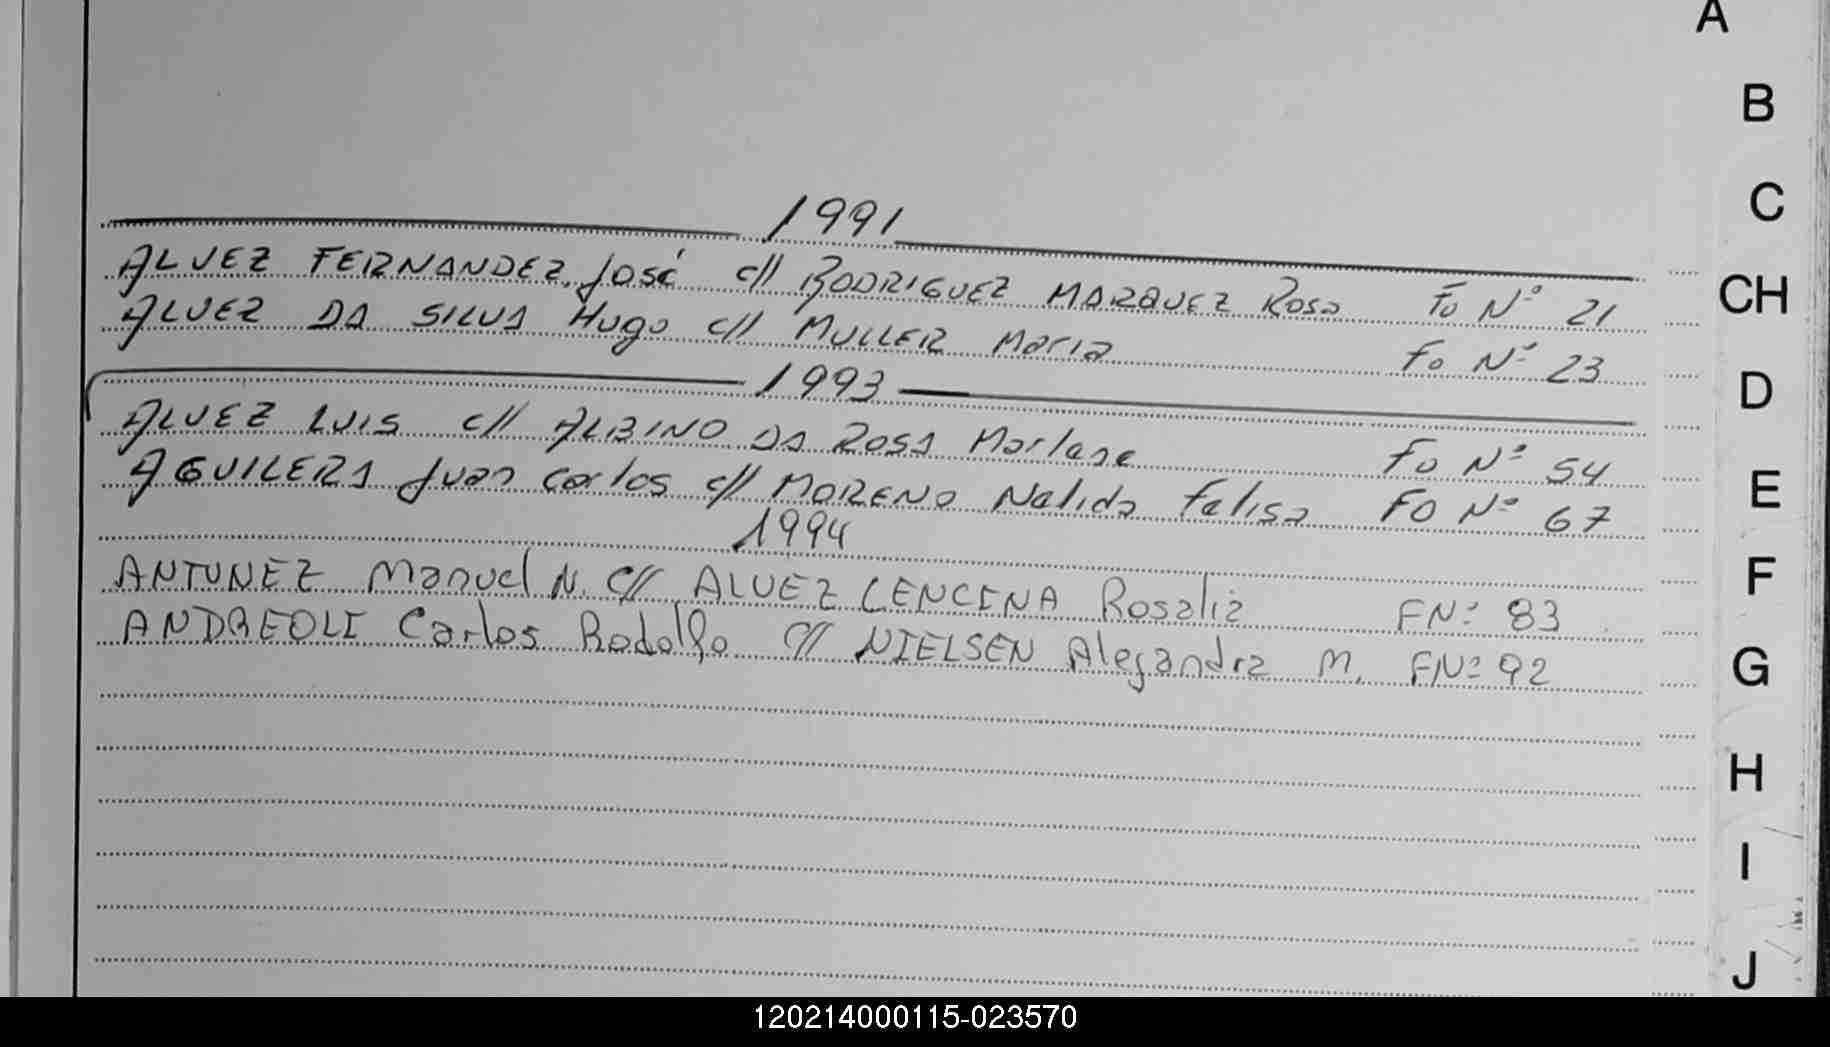 A
B
C
1991
ALVEZ FERNANDEZ, José c// RODRIGUEZ MARQUEZ Rosa Fo Nº 21
CH
ALVEZ DA SILVA Hugo c// MULLER Maria Fo Nº 23
1993
D
ALVEZ LUIS c// ALBINO DA ROSA Marlene Fo Nº 54
AGUILERA Juan Carlos c// MORENO Nelida Felisa FO Nº 67
E
1994
F
ANTUNEZ Manuel N. C// ALVEZ CENCENA Rosalia FNº 83
ANDREOLI Carlos Rodolfo C// NIELSEN Alejandra M. FNº 92
G
H
I
J
120214000115-023570